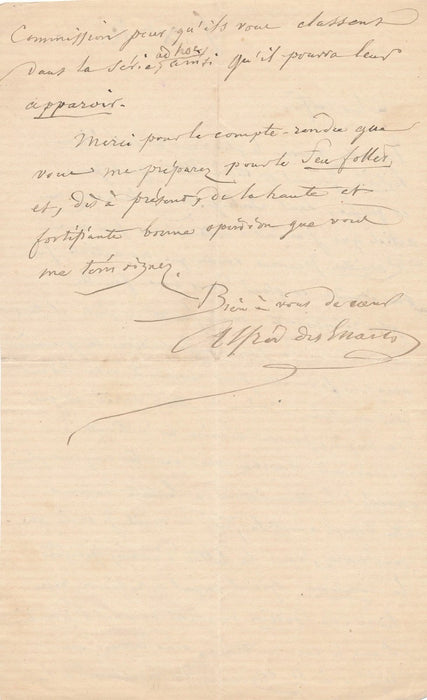 Commission pour qu'ils vous classent
dans la série, ad hoc, ainsi qu'il pourra leur
apparoir.
Merci pour le compte-rendu que
vous me préparez pour le Feu follet,
et, dès à présent, de la haute et
fortifiante bonne opinion que vous
me témoignez.
Bien à vous de cœur
Alfred des Essarts